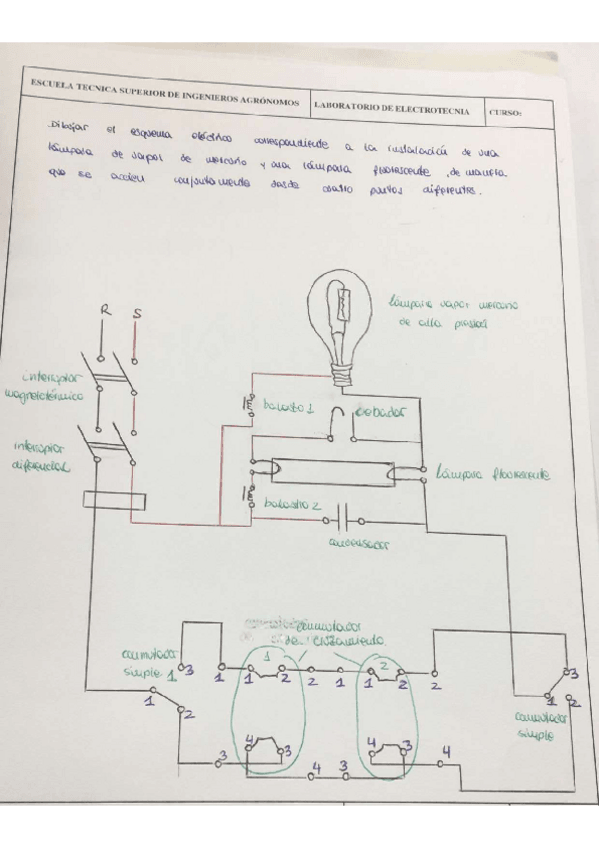 ESCUELA TECNICA SUPERIOR DE INGENIEROS AGRÓNOMOS
LABORATORIO DE ELECTROTECNIA
CURSO:
Dibujar el esquema eléctrico correspondiente a la instalación de una
lámpara de vapor de mercurio y una lámpara fluorescente, de manera
que se accien conjuntamente desde cuatro puntos diferentes.
lámpara vapor mercurio
de alta presión
R S
interruptor
magnetotérmico
balasto 1
cebador
interruptor
diferencial
lámpara fluorescente
balastro 2
condensador
conmutador
de cruzamiento
conmutador
simple 1
3
1
1
1
2
2
1
1
2
2
2
3
1
2
1
2
conmutador
simple
3
4
3
4
3
4
3
4